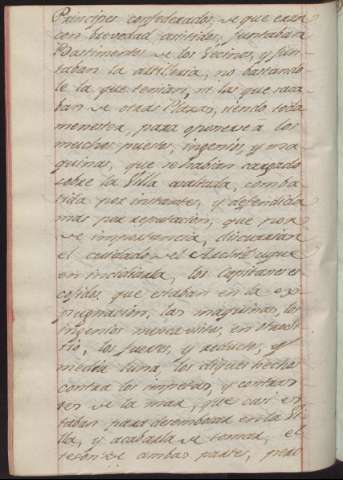 Principes confederados, de que eran
con brevedad asistidos, juntaban
Bastimentos de los Vecinos, y jun
taban la artilleria, no bastando
le la que tenian, ni las que saca
ban de otras Plazas, siendo todo
menester, para oponerse à los
muchos puestos, ingenios, y ma
quinas, que se habian cargado
sobre la Villa asaltada, comba
tida por instantes, y defendida
mas por reputacion, que por
de importancia, discurrian
el cuidado de el Archiduque
en incidirla, los Capitanes es
cojidos que estaban en la ex
pugnacion, las maquinas, los
ingenios nunca vistos, en otro si
tio, los fuertes, y reductos, y
media luna, los diques hechos
contra los impetus, y contras
tes de la mar, que casi es
taban para desembocar en la Vi
lla, y acabarla de tomar, el
teson de ambas partes, pero